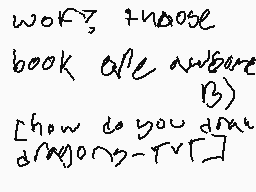 wof? thoose
book are awsome
B)
[how do you draw
dragons-TvT]